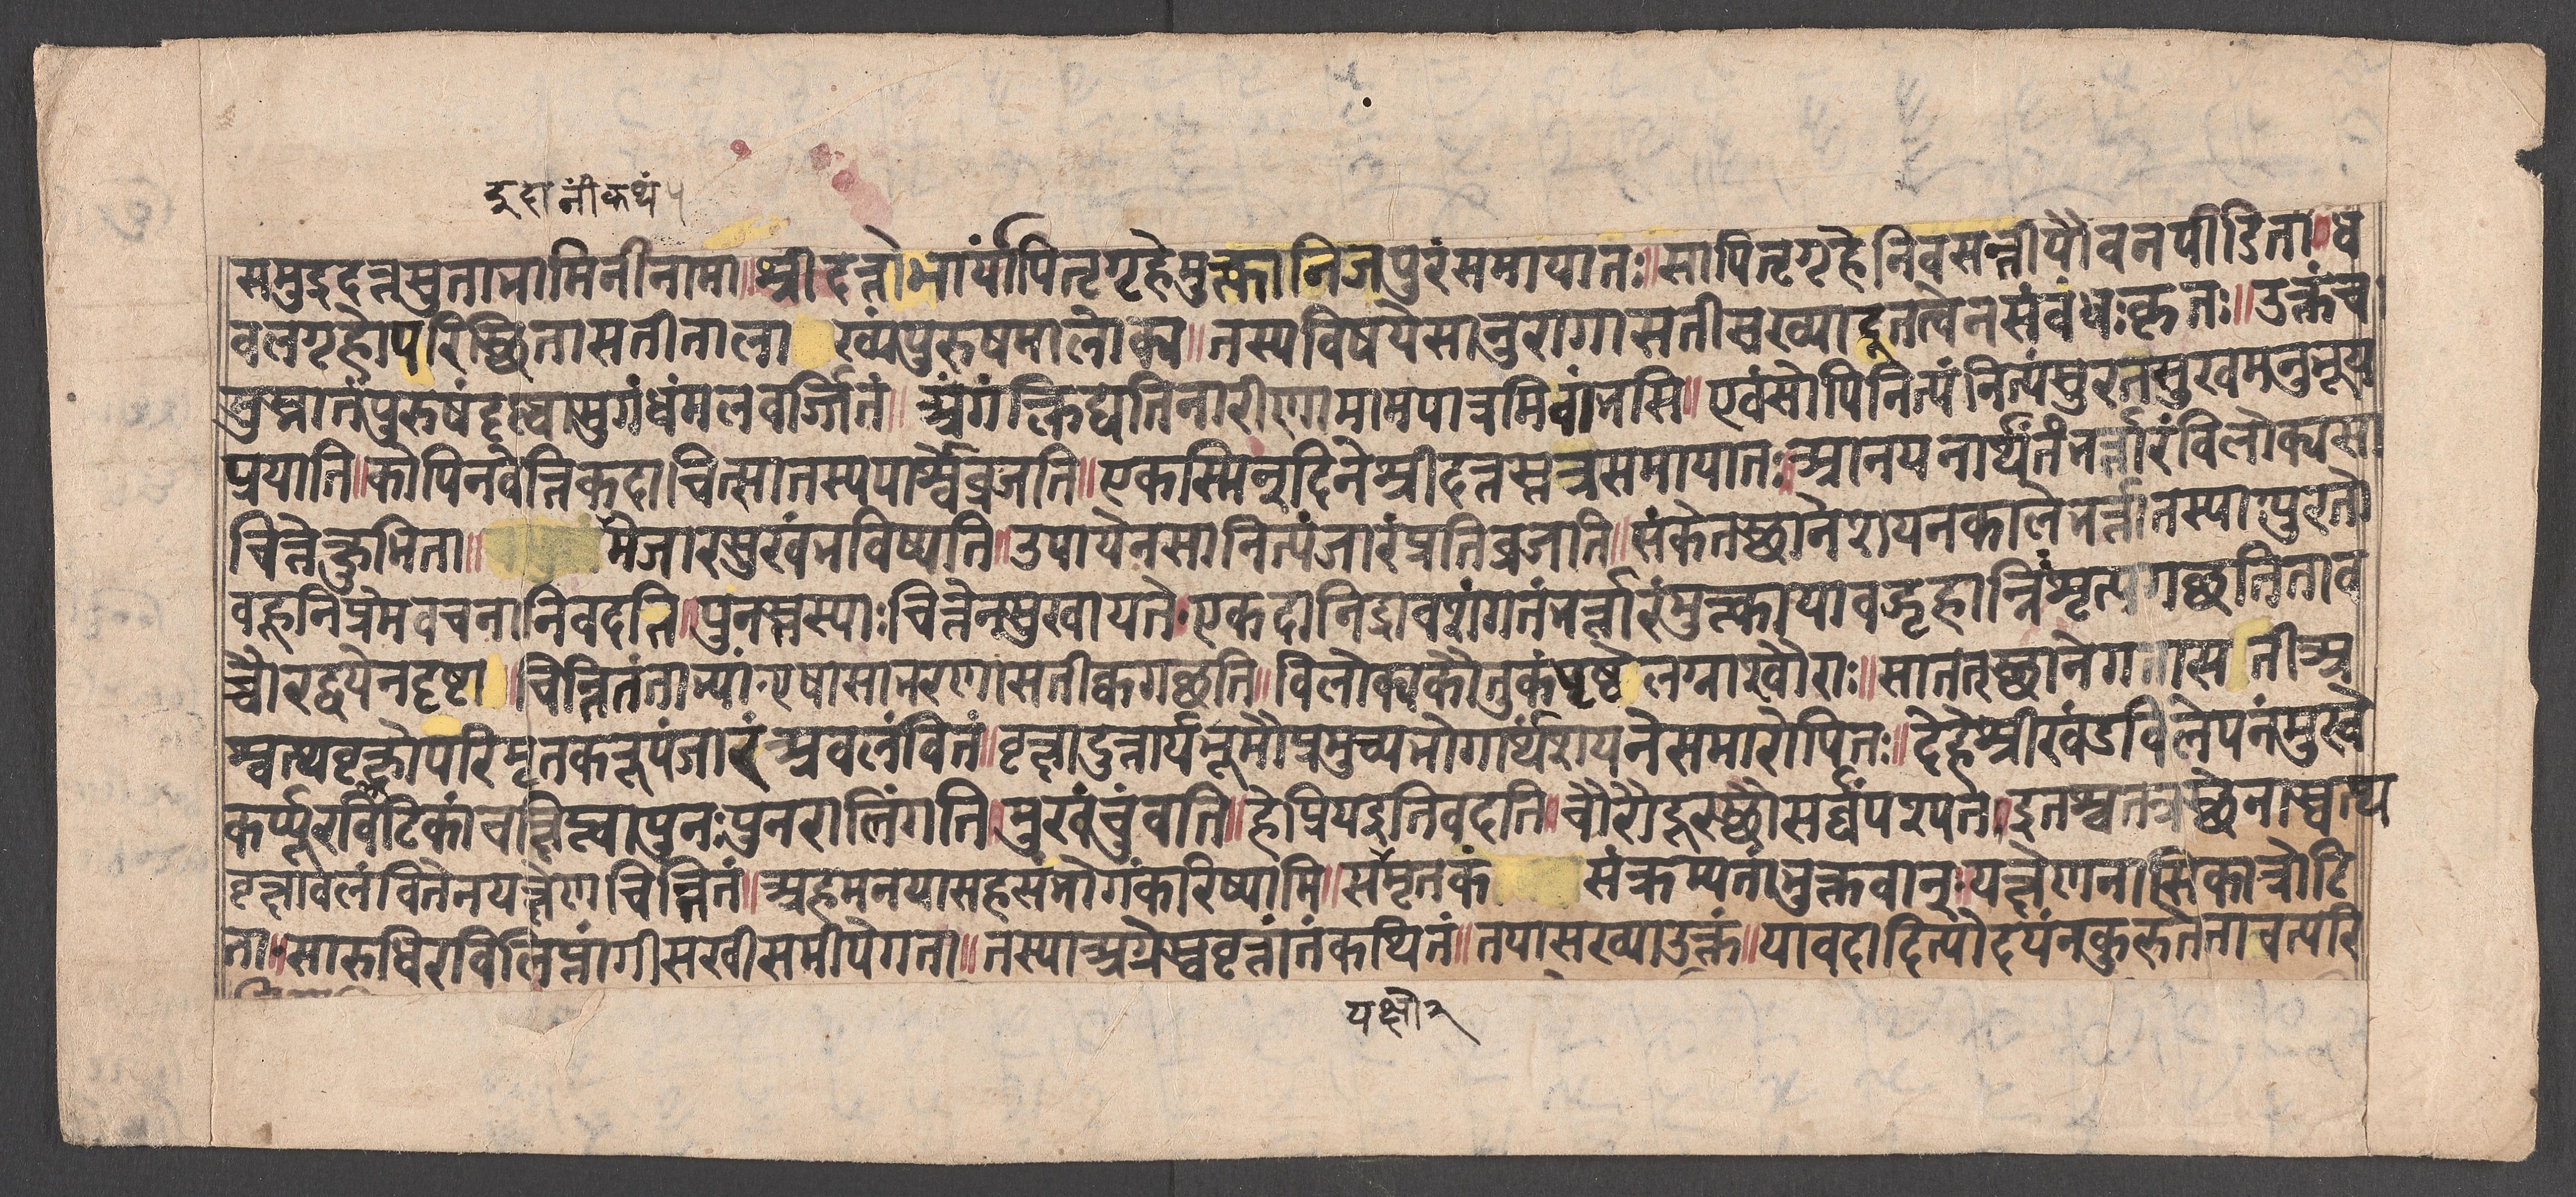 इदानीं कथं ५
समुद्रदत्तसुता भामिनीनामा॥ श्रीदत्तो भार्यां पितृगृहे मुक्त्वा निजपुरं समायातः॥ सा पितृगृहे निवसन्ती यौवनपीडिता॥ ध
वलगृहोपरिस्थिता सती ताला ख्यं पुरुषमालोक्य॥ तस्य विषये सानुरागा सती सख्या दूतत्वेन संबंधः कृतः॥ उक्तं च॥
सुस्नातं पुरुषं दृष्ट्वा सुगंधं मलवर्ज्जितं॥ अंगं क्लिद्यति नारीणामामपात्रमिवांभसि॥ एवं सोपि नित्यं नित्यं सुरतसुखमनुभूय
प्रयाति॥ कोपि न वेत्ति कदाचित्सा तस्य पार्श्वे व्रजति॥ एकस्मिन् दिने श्रीदत्तस्तत्र समायातः॥ आनयनार्थं तं भर्त्तारं विलोक्य सा
चित्ते क्षुभिता॥ मे जारसुखं भविष्यति॥ उपायेन सा नित्यं जारं प्रति व्रजति॥ संकेतस्थाने शयनकाले भर्त्ता तस्याः पुरतो
बहूनि प्रेमवचनानि वदति॥ पुनस्तस्याः चित्ते न सुखायते॥ एकदा निद्रावशंगतं भर्त्तारं मुक्त्का यावद्गृहान्निःसृत्य गच्छति ताव
च्चौरद्वयेन दृष्टा॥ चिन्तितं ताभ्यां एषा साभरणा सती क्व गच्छति॥ विलोक्य कौतुकं पृष्ठे लग्नाश्चौराः॥ सा तत्स्थाने गता सती अ
श्वत्थवृक्षोपरि मृतकरूपं जारं अवलंबितं॥ वृक्षादुत्तार्य भूमौ प्रमुच्य भोगार्थं शयने समारोपितः॥ देहे श्रीखंडविलेपनं मुखे
कर्प्पूरविटिकां च क्षिप्त्वा पुनः पुनरालिंगति॥ मुखं चुंबति॥ हे प्रिय इति वदति॥ चौरौ दूरस्थौ सर्व्वं पश्यतः॥ इतश्च तत्रस्थेनाश्वत्थ
वृक्षावलंबितेन यक्षेण चिन्तितं॥ अहमनया सह संभोगं करिष्यामि॥ स मृतकं संक्रम्य तां भुक्तवान्॥ यक्षेण नासिका त्रोटि
ता॥ सा रुधिरविलिप्तांगी सखीसमीपे गता॥ तस्या अग्रे स्ववृत्तांतं कथितं॥ तया सख्या उक्तं॥ यावदादित्योदयं न कुरुते तावत्परि
यक्षो २